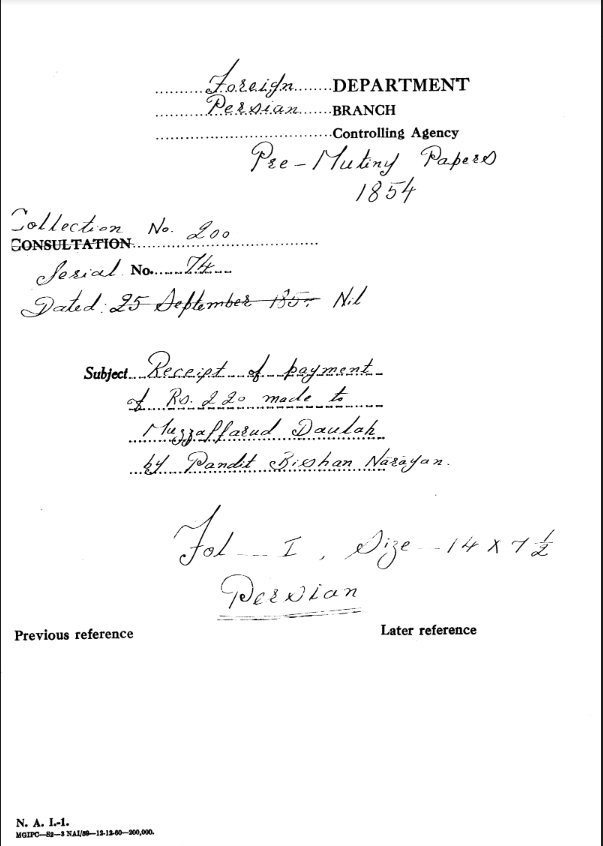 Foreign DEPARTMENT
Persian BRANCH
Controlling Agency
Pre-Mutiny Papers
1854
Collection No. 200
CONSULTATION
Serial No. 74
Dated: 25 September 185 Nil
Subject Receipt of payment
of Rs. 220 made to
Muzzaffarud Daulah
by Pandit Bishan Narayan.
Fol -- I, Size -- 14 x 7 1/2
Persian
Previous reference Later reference
N. A. I.-1.
MGIPC—S2—3 NAI/59—12-12-60—200,000.